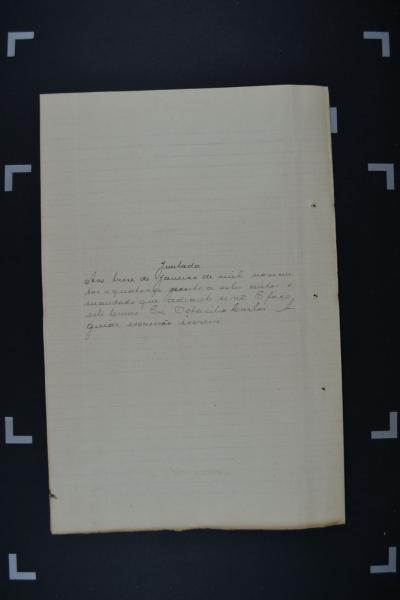 Juntada
Aos treze de Janeiro de mil novecen
tos e quatorze junto a estes autos o
mandado que adiante se vê. E faço
este termo. Eu Carlos
escrivão escrevi